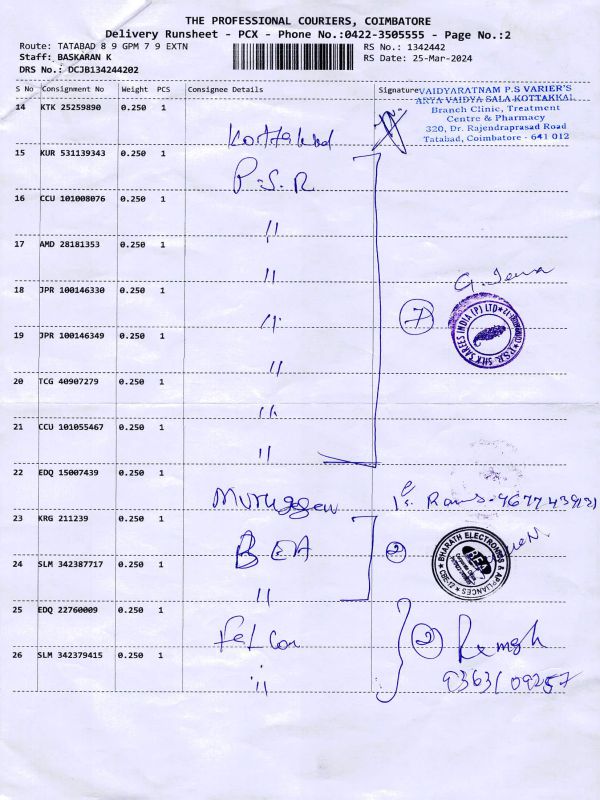 THE PROFESSIONAL COURIERS, COIMBATORE
Delivery Runsheet - PCX - Phone No.:0422-3505555 - Page No.:2
Route: TATABAD 8 9 GPM 7 9 EXTN
RS No.: 1342442
Staff: BASKARAN K
RS Date: 25-Mar-2024
DRS No.: DCJB134244202
S No Consignment No Weight PCS Consignee Details Signature
VAIDYARATNAM P.S VARIER'S
ARYA VAIDYA SALA KOTTAKKAL
Branch Clinic, Treatment
Centre & Pharmacy
320, Dr. Rajendraprasad Road
Tatabad, Coimbatore - 641 012
14 KTK 25259890 0.250 1
15 KUR 531139343 0.250 1 P.S.R
16 CCU 101008076 0.250 1 "
17 AMD 28181353 0.250 1 "
18 JPR 100146330 0.250 1 "
7
P.S.R. SILK SAREES INDIA (P) LTD COIMBATORE-12
19 JPR 100146349 0.250 1 "
20 TCG 40907279 0.250 1 "
21 CCU 101055467 0.250 1 "
22 EDQ 15007439 0.250 1
23 KRG 211239 0.250 1 BEA 2
BHARATH ELECTRONICS & APPLIANCES
BEA
24 SLM 342387717 0.250 1 "
25 EDQ 22760009 0.250 1 Falcon 2 Ramesh
26 SLM 342379415 0.250 1 "